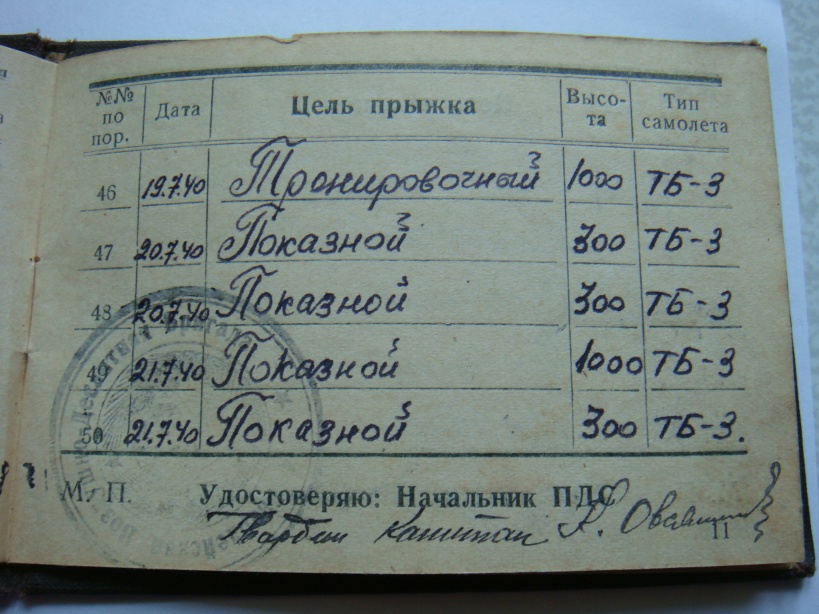 №№ по пор. Дата Цель прыжка Высо-та Тип самолета
46 19.7.40 Тронировочный 1000 ТБ-3
47 20.7.40 Показной 300 ТБ-3
48 20.7.40 Показной 300 ТБ-3
49 21.7.40 Показной 1000 ТБ-3
50 21.7.40 Показной 300 ТБ-3.
М. П. Удостоверяю: Начальник ПДС
Гвардии Капитан
11